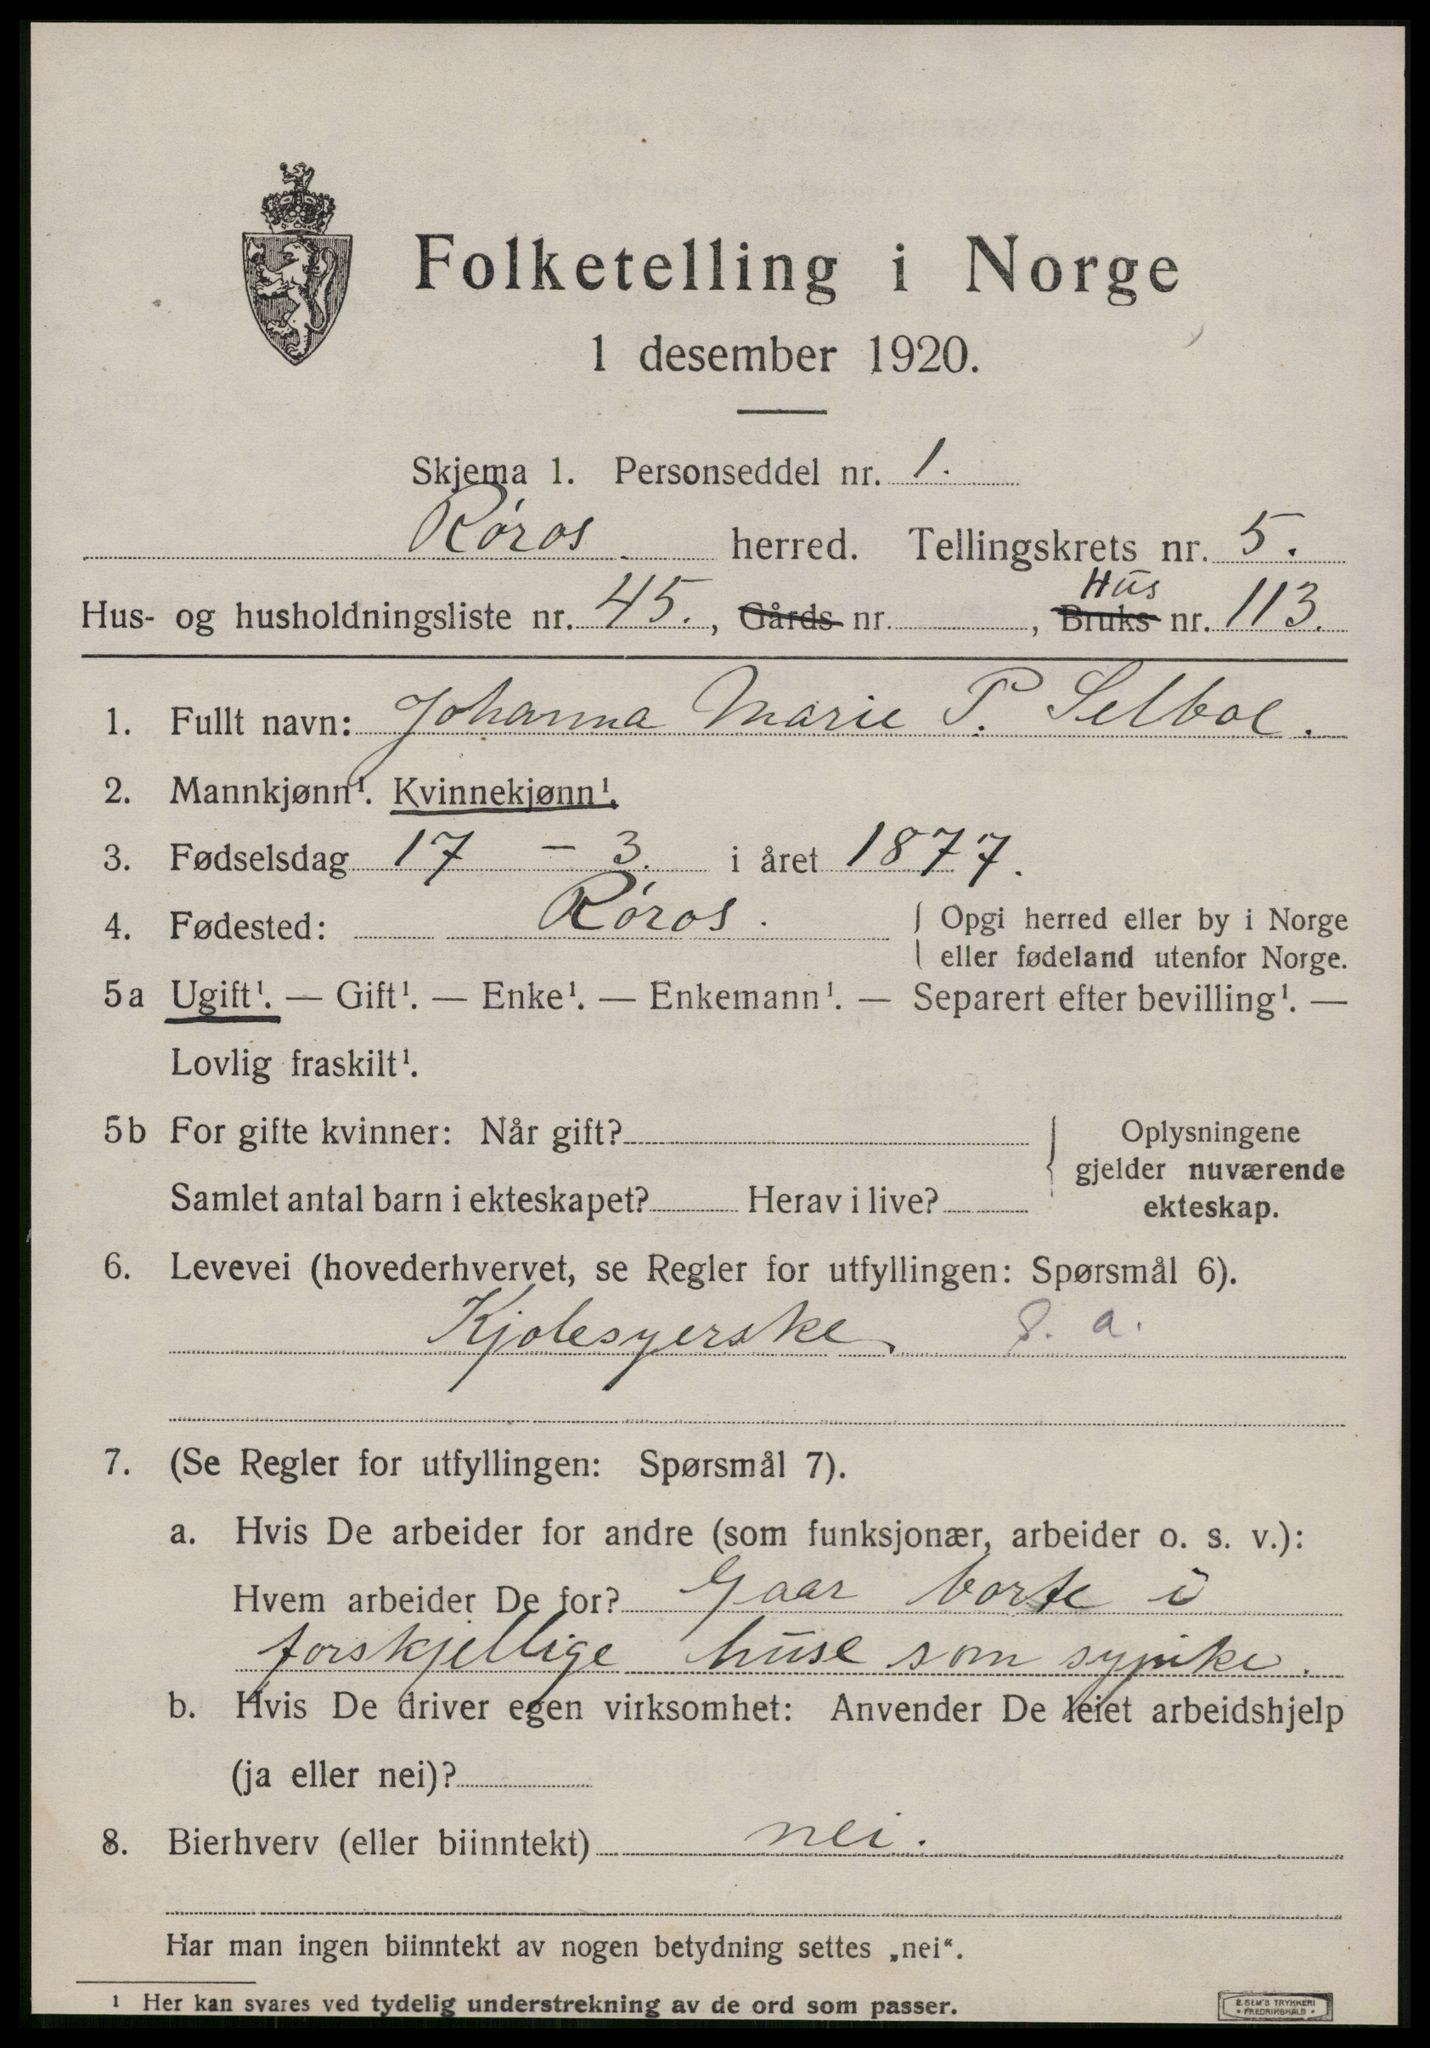 Folketelling i Norge
1 desember 1920.
Skjema 1. Personseddel nr. 1.
Røros. herred. Tellingskrets nr. 5.
Hus
Hus- og husholdningsliste nr. 45., Gårds nr. , Bruks nr. 113.
1. Fullt navn: Johanna Marie P. Selboe.
2. Mannkjønn¹. Kvinnekjønn¹.
3. Fødselsdag 17 - 3. i året 1877.
4. Fødested: Røros. { Opgi herred eller by i Norge
eller fødeland utenfor Norge.
5a Ugift¹. — Gift¹. — Enke¹. — Enkemann¹. — Separert efter bevilling¹. —
Lovlig fraskilt¹.
5b For gifte kvinner: Når gift? Oplysningene
gjelder nuværende
Samlet antal barn i ekteskapet? Herav i live? ekteskap.
6. Levevei (hovederhvervet, se Regler for utfyllingen: Spørsmål 6).
Kjolesyerske a.
7. (Se Regler for utfyllingen: Spørsmål 7).
a. Hvis De arbeider for andre (som funksjonær, arbeider o. s. v.):
Hvem arbeider De for? Gaar borte i
forskjellige huse som syjike.
b. Hvis De driver egen virksomhet: Anvender De leiet arbeidshjelp
(ja eller nei)?
8. Bierhverv (eller biinntekt) nei.
Har man ingen biinntekt av nogen betydning settes „nei“.
¹ Her kan svares ved tydelig understrekning av de ord som passer.
E. SEM'S TRYKKERI
• FREDRIKSHALD •